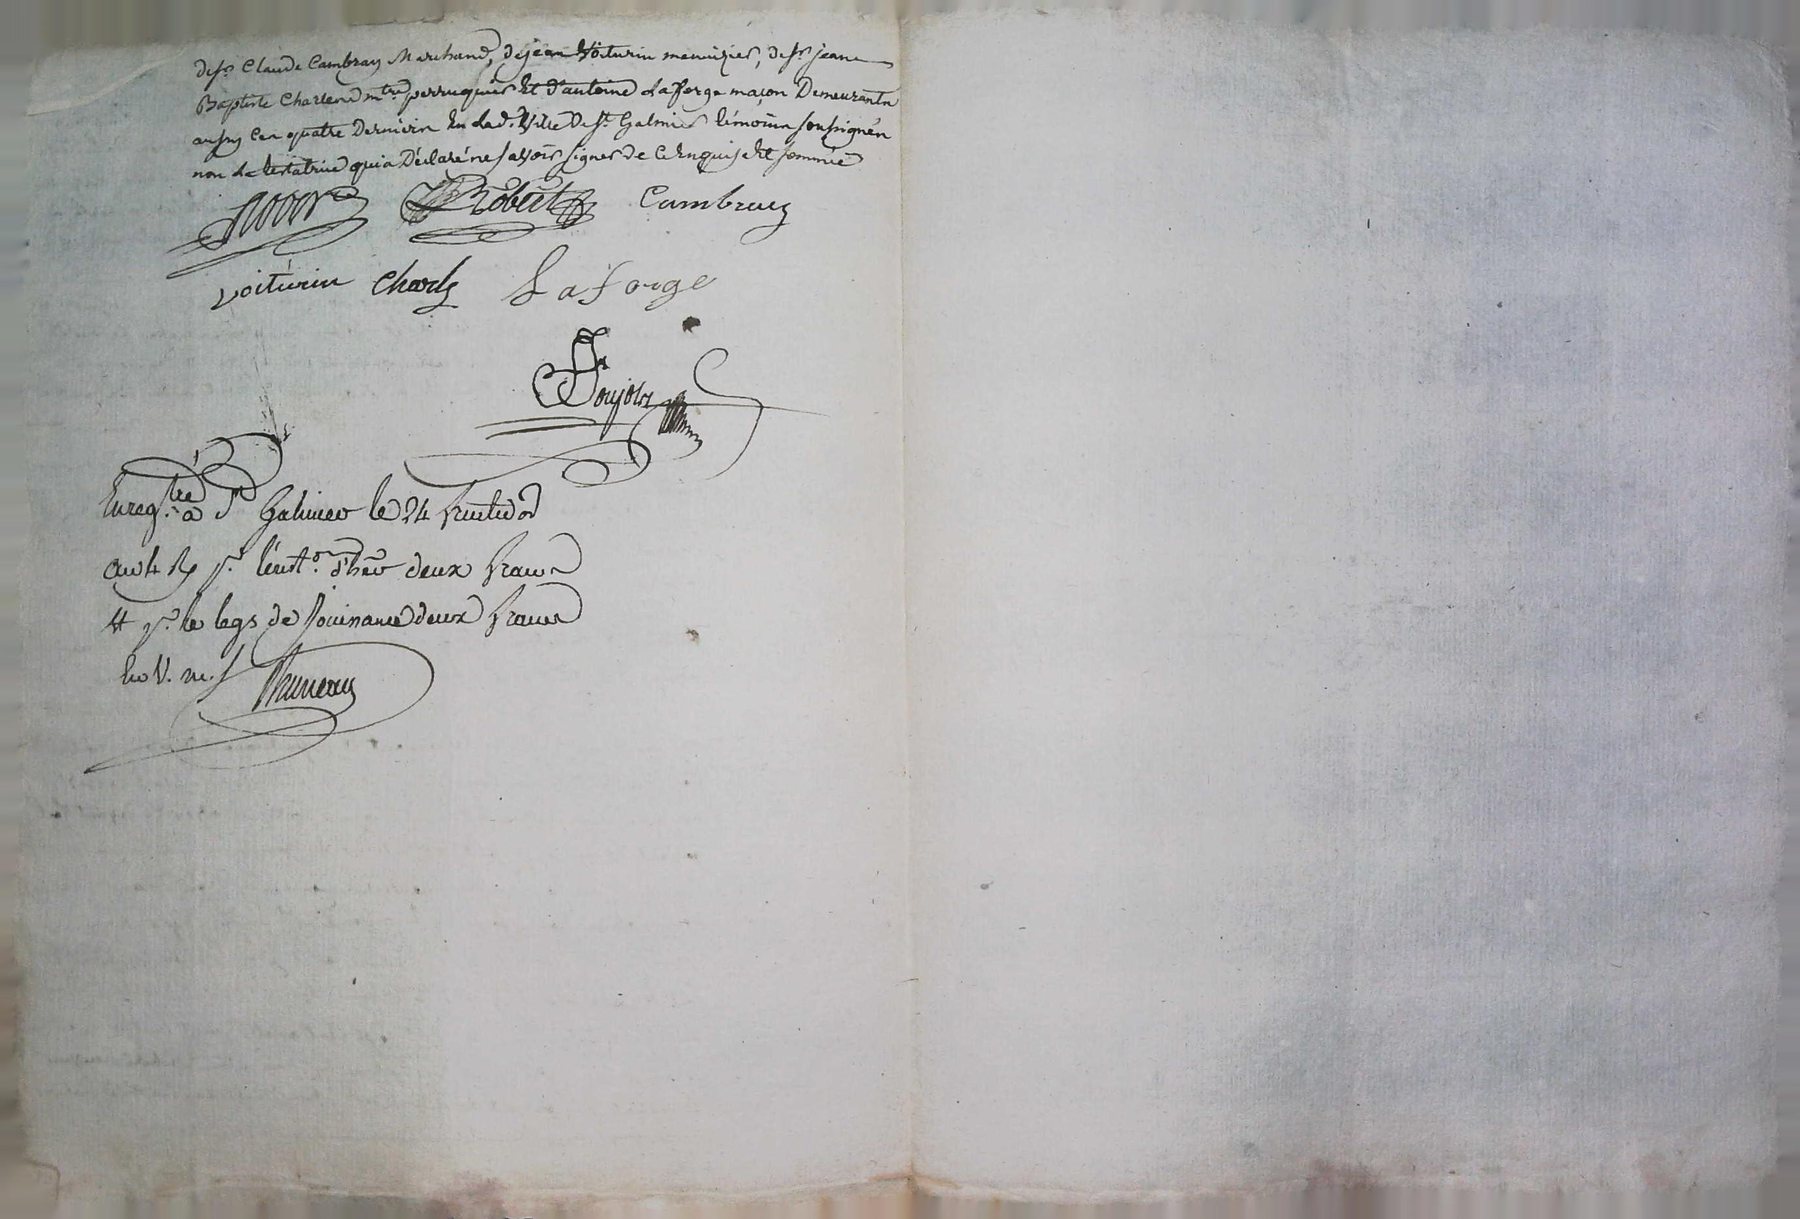 de Sr. Claude Cambray Marchand, de jean Voiturin menuizier, de Sr. jean
Baptiste Charles mtre. perruquier Et d'antoine Laforge maçon Demeurants
aussy Ces quatre Derniers En Lad. Ville De St. Galmier témoins soussignés
non La testatrice qui a Déclaré ne savoir signer de Ce Enquise Et sommée
Robert Cambray
voiturin Charles La forge
Enregtré. a St Galmier le 24 fructidor
an 4 R. pr. l'inston. d'her deux francs
et pr. le legs de Jouissance deux francs
en V. m.